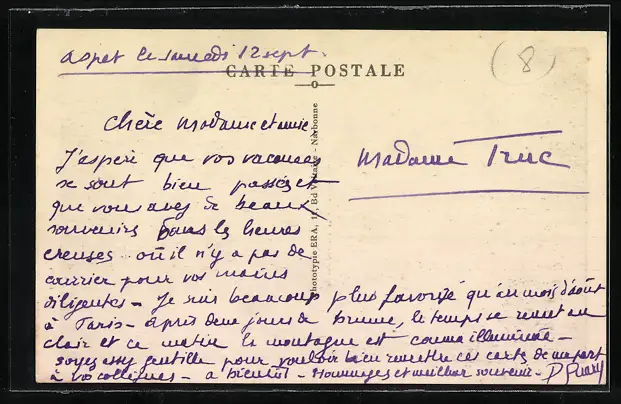 Aspet le samedi 12 sept.
CARTE POSTALE
(8)
Chère Madame et amie,
J'espère que vos vacances
se sont bien passées et
que vous avez de beaux
souvenirs dans les heures
creuses où il n'y a pas de
courrier pour vos mains
diligentes - Je suis beaucoup plus favorisé qu'au mois d'août
à Paris - après deux jours de brume, le temps se remet au
clair et ce matin la montagne est illuminée -
soyez assez gentille pour vouloir bien remettre ces cartes de ma part
à vos collègues - à bientôt - Hommages et meilleur souvenir -
Madame Truc
Phototypie ERA, Bd Voltaire - Narbonne